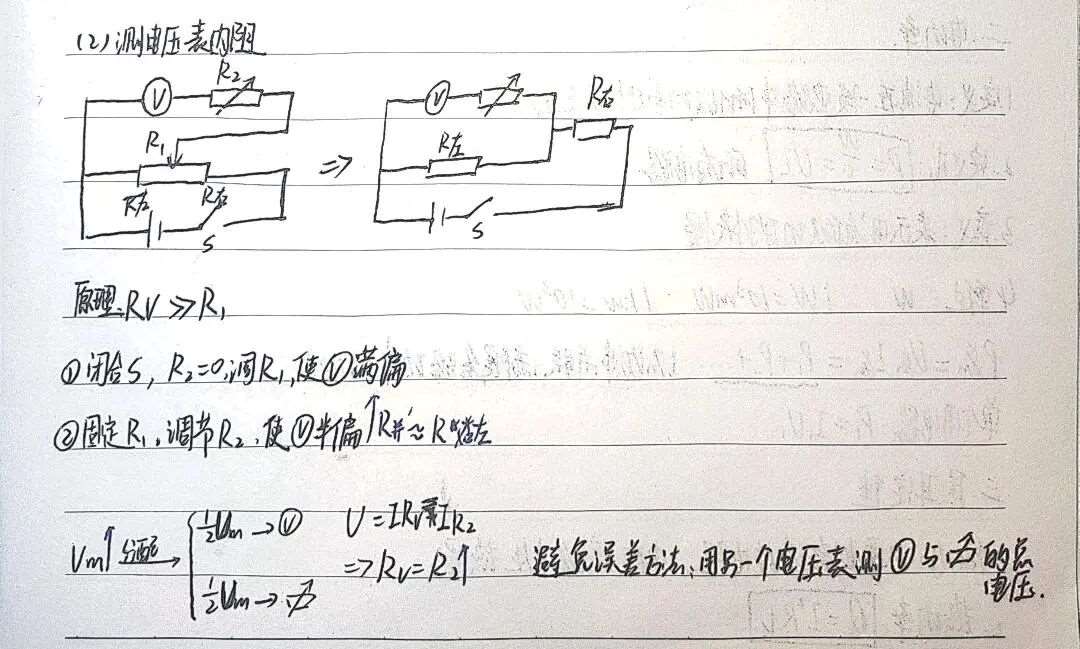 (2) 测电压表内阻
V R2
R1
R左 R右
S
⇒
V R右
R左
S
原理: RV >> R1
① 闭合S, R2=0, 调R1, 使Ⓥ满偏
② 固定R1, 调节R2, 使Ⓥ半偏 ↑R并≈R左
Um↑ 分配→ { ½Um → Ⓥ U = IRV IR2
⇒ RV = R2↑
½Um →
避免误差方法: 用另一个电压表测Ⓥ与 的总
电压.